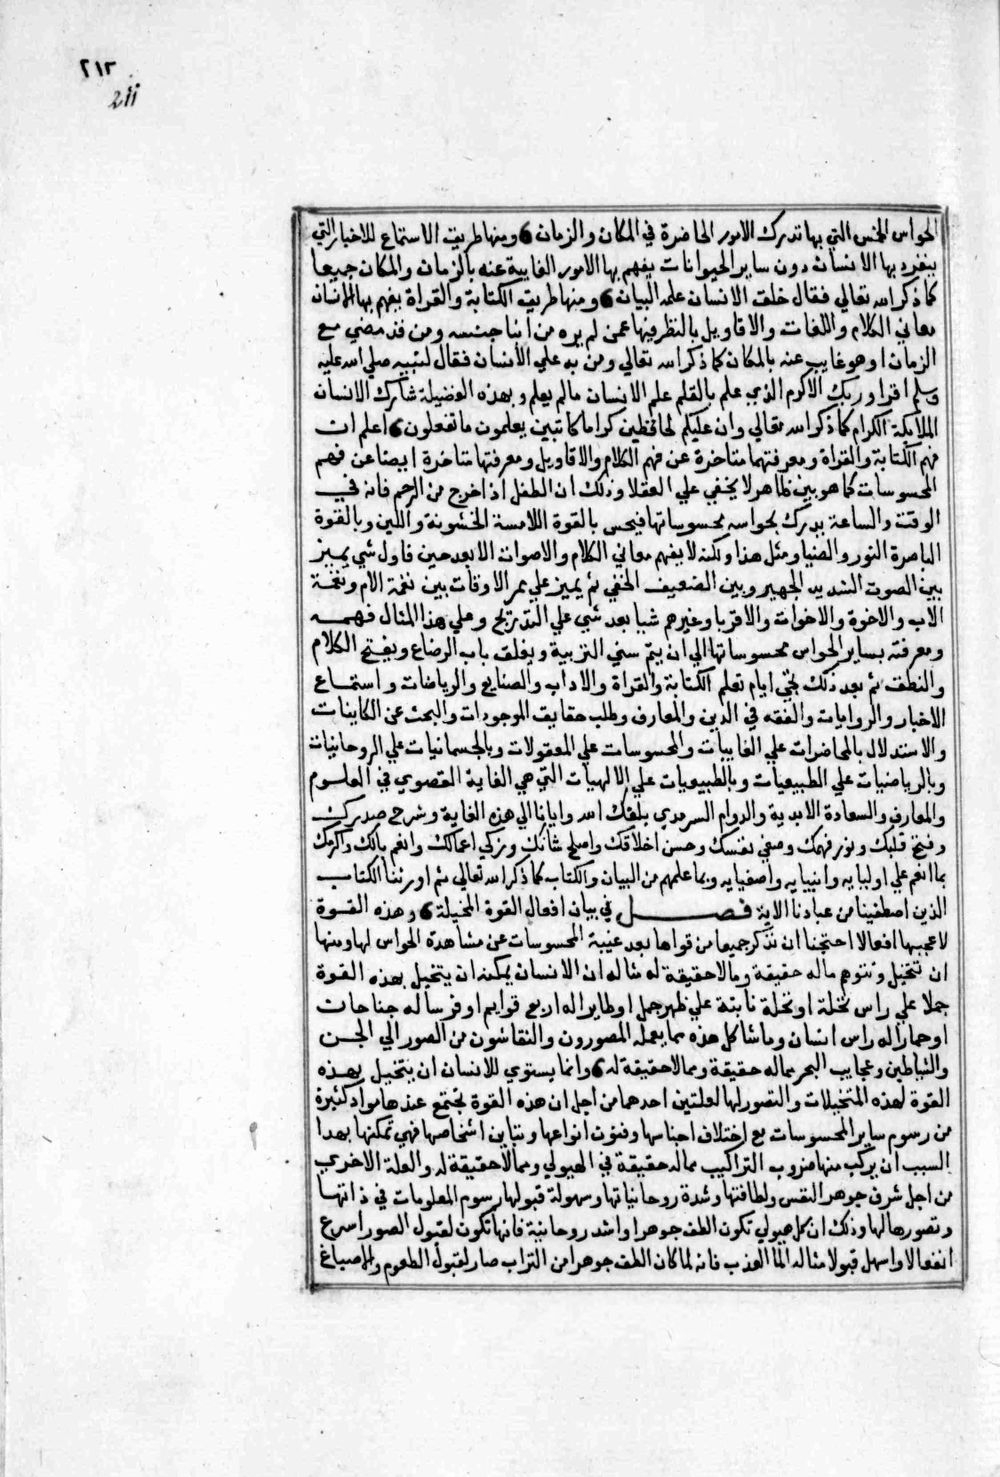 ٢١٢
211
الحواس الخمس التي بها تدرك الامور الحاضرة في المكان والزمان ومنها طريق الاستماع للاخبار التي
ينفرد بها الانسان دون ساير الحيوانات يفهم بها الامور الغايبة عنه بالزمان والمكان جميعا
كما ذكر الله تعالي فقال خلق الانسان علمه البيان ومنها طريق الكتابة والقراة يفهم بها الانسان
معاني الكلام واللغات والاقاويل بالنظر فيها عمن لم يره من ابنا جنسه ومن قد مضي مع
الزمان او هو غايب عنه بالمكان كما ذكر الله تعالي ومن به علي الانسان فقال لنبيه صلي الله عليه
وسلم اقرا وربك الاكرم الذي علم بالقلم علم الانسان مالم يعلم وبهذه الفضيلة شارك الانسان
الملايكة الكرام كما ذكر الله تعالي وان عليكم لحافظين كراما كاتبين يعلمون ما تفعلون اعلم ان
فهم الكتابة والقراة ومعرفتهما متاخرة عن فهم الكلام والاقاويل ومعرفتها متاخرة ايضا عن فهم
المحسوسات كما هو بين ظاهر لا يخفي علي العقلا وذلك ان الطفل اذا خرج من الرحم فانه في
الوقت والساعة يدرك بحواسه محسوساتها فيحس بالقوة اللامسة الخشونة واللين وبالقوة
الباصرة النور والضيا ومثل هذا ولكنه لا يفهم معاني الكلام والاصوات الا بعد حين فاول شي يميز
بين الصوت الشديد الجهير وبين الضعيف الخفي ثم يميز علي ممر الاوقات بين نغمة الام ونغمة
الاب والاخوة والاخوات والاقربا وغيرهم شيا بعد شي علي التدريج وعلي هذا المثال فهمه
ومعرفته بساير الحواس محسوساتها الي ان يتم سني التربية ويغلق باب الرضاع ويفتح الكلام
والنطق ثم بعد ذلك تجي ايام تعلم الكتابة والقراة والاداب والصنايع والرياضات واستماع
الاخبار والروايات والفقه في الدين والمعارف وطلب حقايق الموجودات والبحث عن الكاينات
والاستدلال بالحاضرات علي الغايبات والمحسوسات علي المعقولات وبالجسمانيات علي الروحانيات
وبالرياضيات علي الطبيعيات وبالطبيعيات علي الالهيات التي هي الغاية القصوي في العلوم
والمعارف والسعادة الابدية والدوام السرمدي بلغك الله وايانا الي هذه الغاية وشرح صدرك
وفتح قلبك ونور فهمك وصفي نفسك وحسن اخلاقك واصلح شانك وزكي اعمالك وانعم بالك واكرمك
بما انعم علي اوليايه وانبيايه واصفيايه وبما علمهم من البيان والكتاب كما ذكر الله تعالي ثم اورثنا الكتاب
الذين اصطفينا من عبادنا الاية فصل في بيان افعال القوة المخيلة وهذه القوة
لاعجبها افعالا احتجنا ان نذكر جميعا من قواها بعد غيبة المحسوسات عن مشاهدة الحواس لها ومنها
ان تتخيل وتتوهم ما له حقيقة وما لا حقيقة له مثاله ان الانسان يمكنه ان يتخيل بهذه القوة
جملا علي راس نخلة او نخلة نابتة علي ظهر جمل او طايرا له اربع قوايم او فرسا له جناحات
او حمارا له راس انسان وما شاكل هذه مما يعمله المصورون والنقاشون من الصور الي الجن
والشياطين وعجايب البحر مما له حقيقة ومما لا حقيقة له وانما يستوي للانسان ان يتخيل بهذه
القوة لهذه المتخيلات والتصور لها لعلتين احدهما من اجل ان هذه القوة تجتمع عندها مواد كثيرة
من رسوم ساير المحسوسات مع اختلاف اجناسها وفنون انواعها وتباين اشخاصها فهي تمكنها بهدا
السبب ان يركب منها ضروب التراكيب مما له حقيقة في الهيولي ومما لا حقيقة له والعلة الاخري
من اجل شرف جوهر النفس ولطافتها وشدة روحانياتها وسهولة قبولها رسوم المعلومات في ذاتها
وتصورها لها وذلك ان كل هيولي تكون الطف جوهرا واشد روحانية فانها تكون لقبول الصور اسرع
انفعالا واسهل قبولا مثاله الما العذب فانه لما كان الطف جوهرا من التراب صار لقبول الطعوم والاصباغ